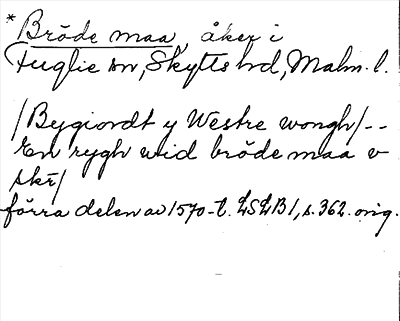 *Bröde maa, åker i
Fuglie sn, Skytts hd, Malm. l.
/Bygiordt y Westre wongh/--
En rygh wid bröde maa v
skr/
förra delen av 1570-t. LSLB1, s. 362. orig.